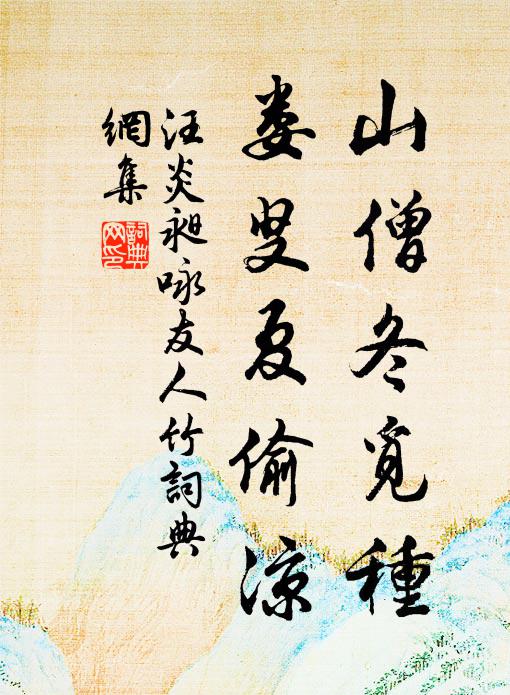 山僧冬覓種
娄叟夏偷涼
汪炎昶咏友人竹詞典
網集
詞典
网印